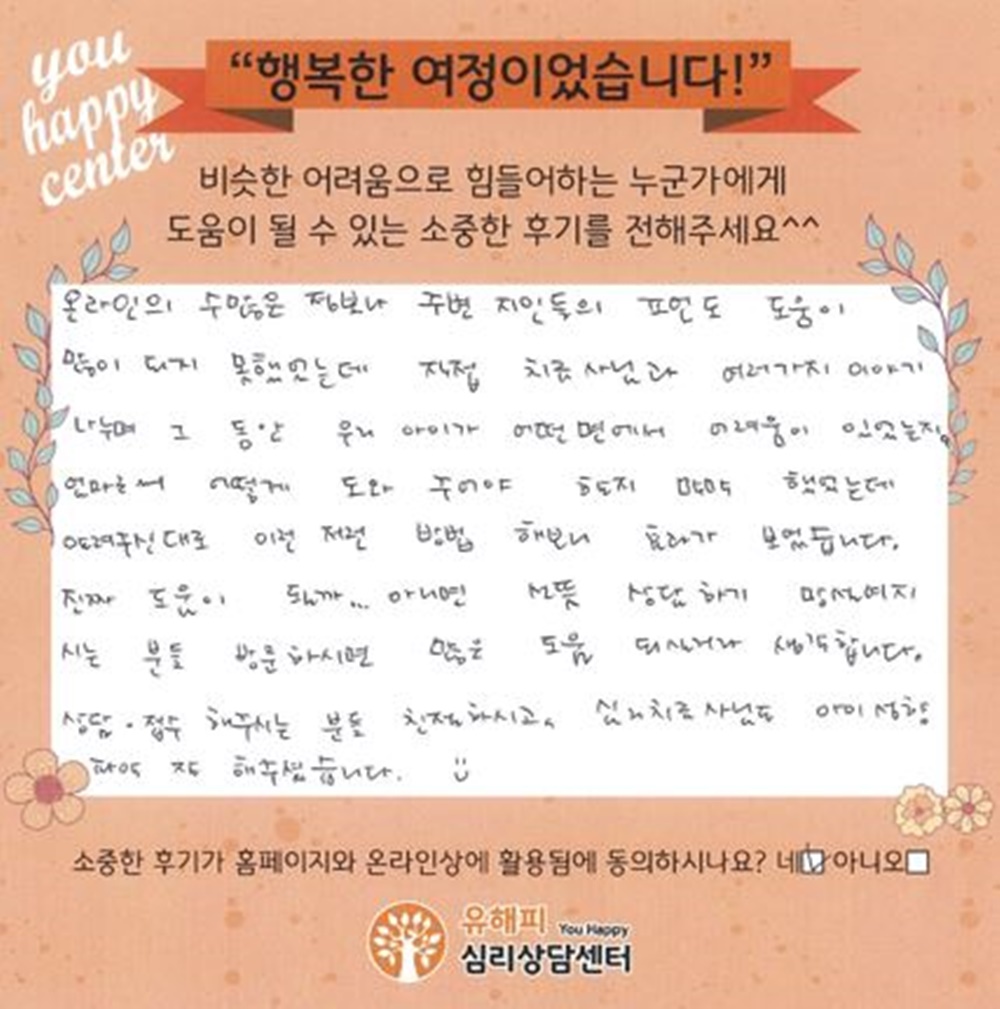 you
happy
center
“행복한 여정이었습니다!”
비슷한 어려움으로 힘들어하는 누군가에게
도움이 될 수 있는 소중한 후기를 전해주세요^^
온라인의 수많은 정보나 주변 지인들의 조언도 도움이
많이 되지 못했었는데 직접 치료사님과 여러가지 이야기
나누며 그 동안 우리 아이가 어떤면에서 어려움이 있었는지,
엄마로써 어떻게 도와 주어야 할지 막막 했었는데
알려주신대로 이런 저런 방법 해보니 효과가 보였습니다.
진짜 도움이 될까... 아니면 선뜻 상담하기 망설여지
시는 분들 방문하시면 많은 도움 되실거라 생각합니다.
상담·접수 해주시는 분들 친절하시고, 심리치료사님도 아이 성향
파악 잘 해주셨습니다.
소중한 후기가 홈페이지와 온라인상에 활용됨에 동의하시나요? 네 아니오
유해피 You Happy
심리상담센터